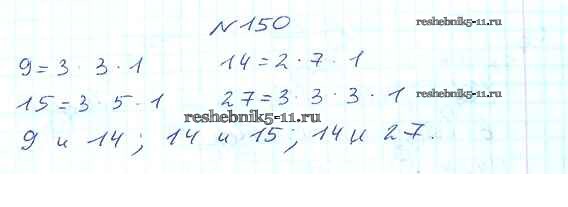 №150
reshebnik5-11.ru
9 = 3 · 3 · 1 14 = 2 · 7 · 1
15 = 3 · 5 · 1 27 = 3 · 3 · 3 · 1
reshebnik5-11.ru
reshebnik5-11.ru
9 и 14; 14 и 15; 14 и 27.